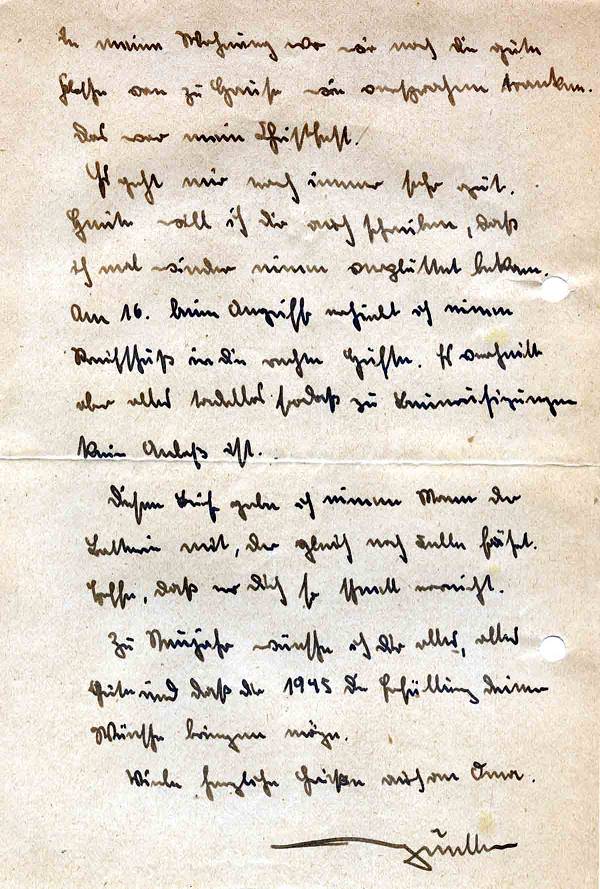 In meine Wohnung wo wir noch die gute
Flasche von zu Hause von tranken.
Das war mein Christfest.
Es geht mir noch immer sehr gut.
Heute will ich dir auch schreiben, daß
ich mal wieder einen verglüttet bekam.
Am 16. beim Angriff erhielt ich einen
Streifschuß in die rechte Hüfte. Es verheilt
aber alles tadellos sodaß zu Beunruhigungen
kein Anlaß ist.
Diesen Brief gebe ich einem Mann der
Batterie mit, der gleich nach Celle fährt.
Hoffe, daß er Dich so schnell erreicht.
Zu Neujahr wünsche ich dir alles, alles
Gute und daß die 1945 die Erfüllung deiner
Wünsche bringen möge.
Viele herzliche Grüße auch an Oma.
Günther